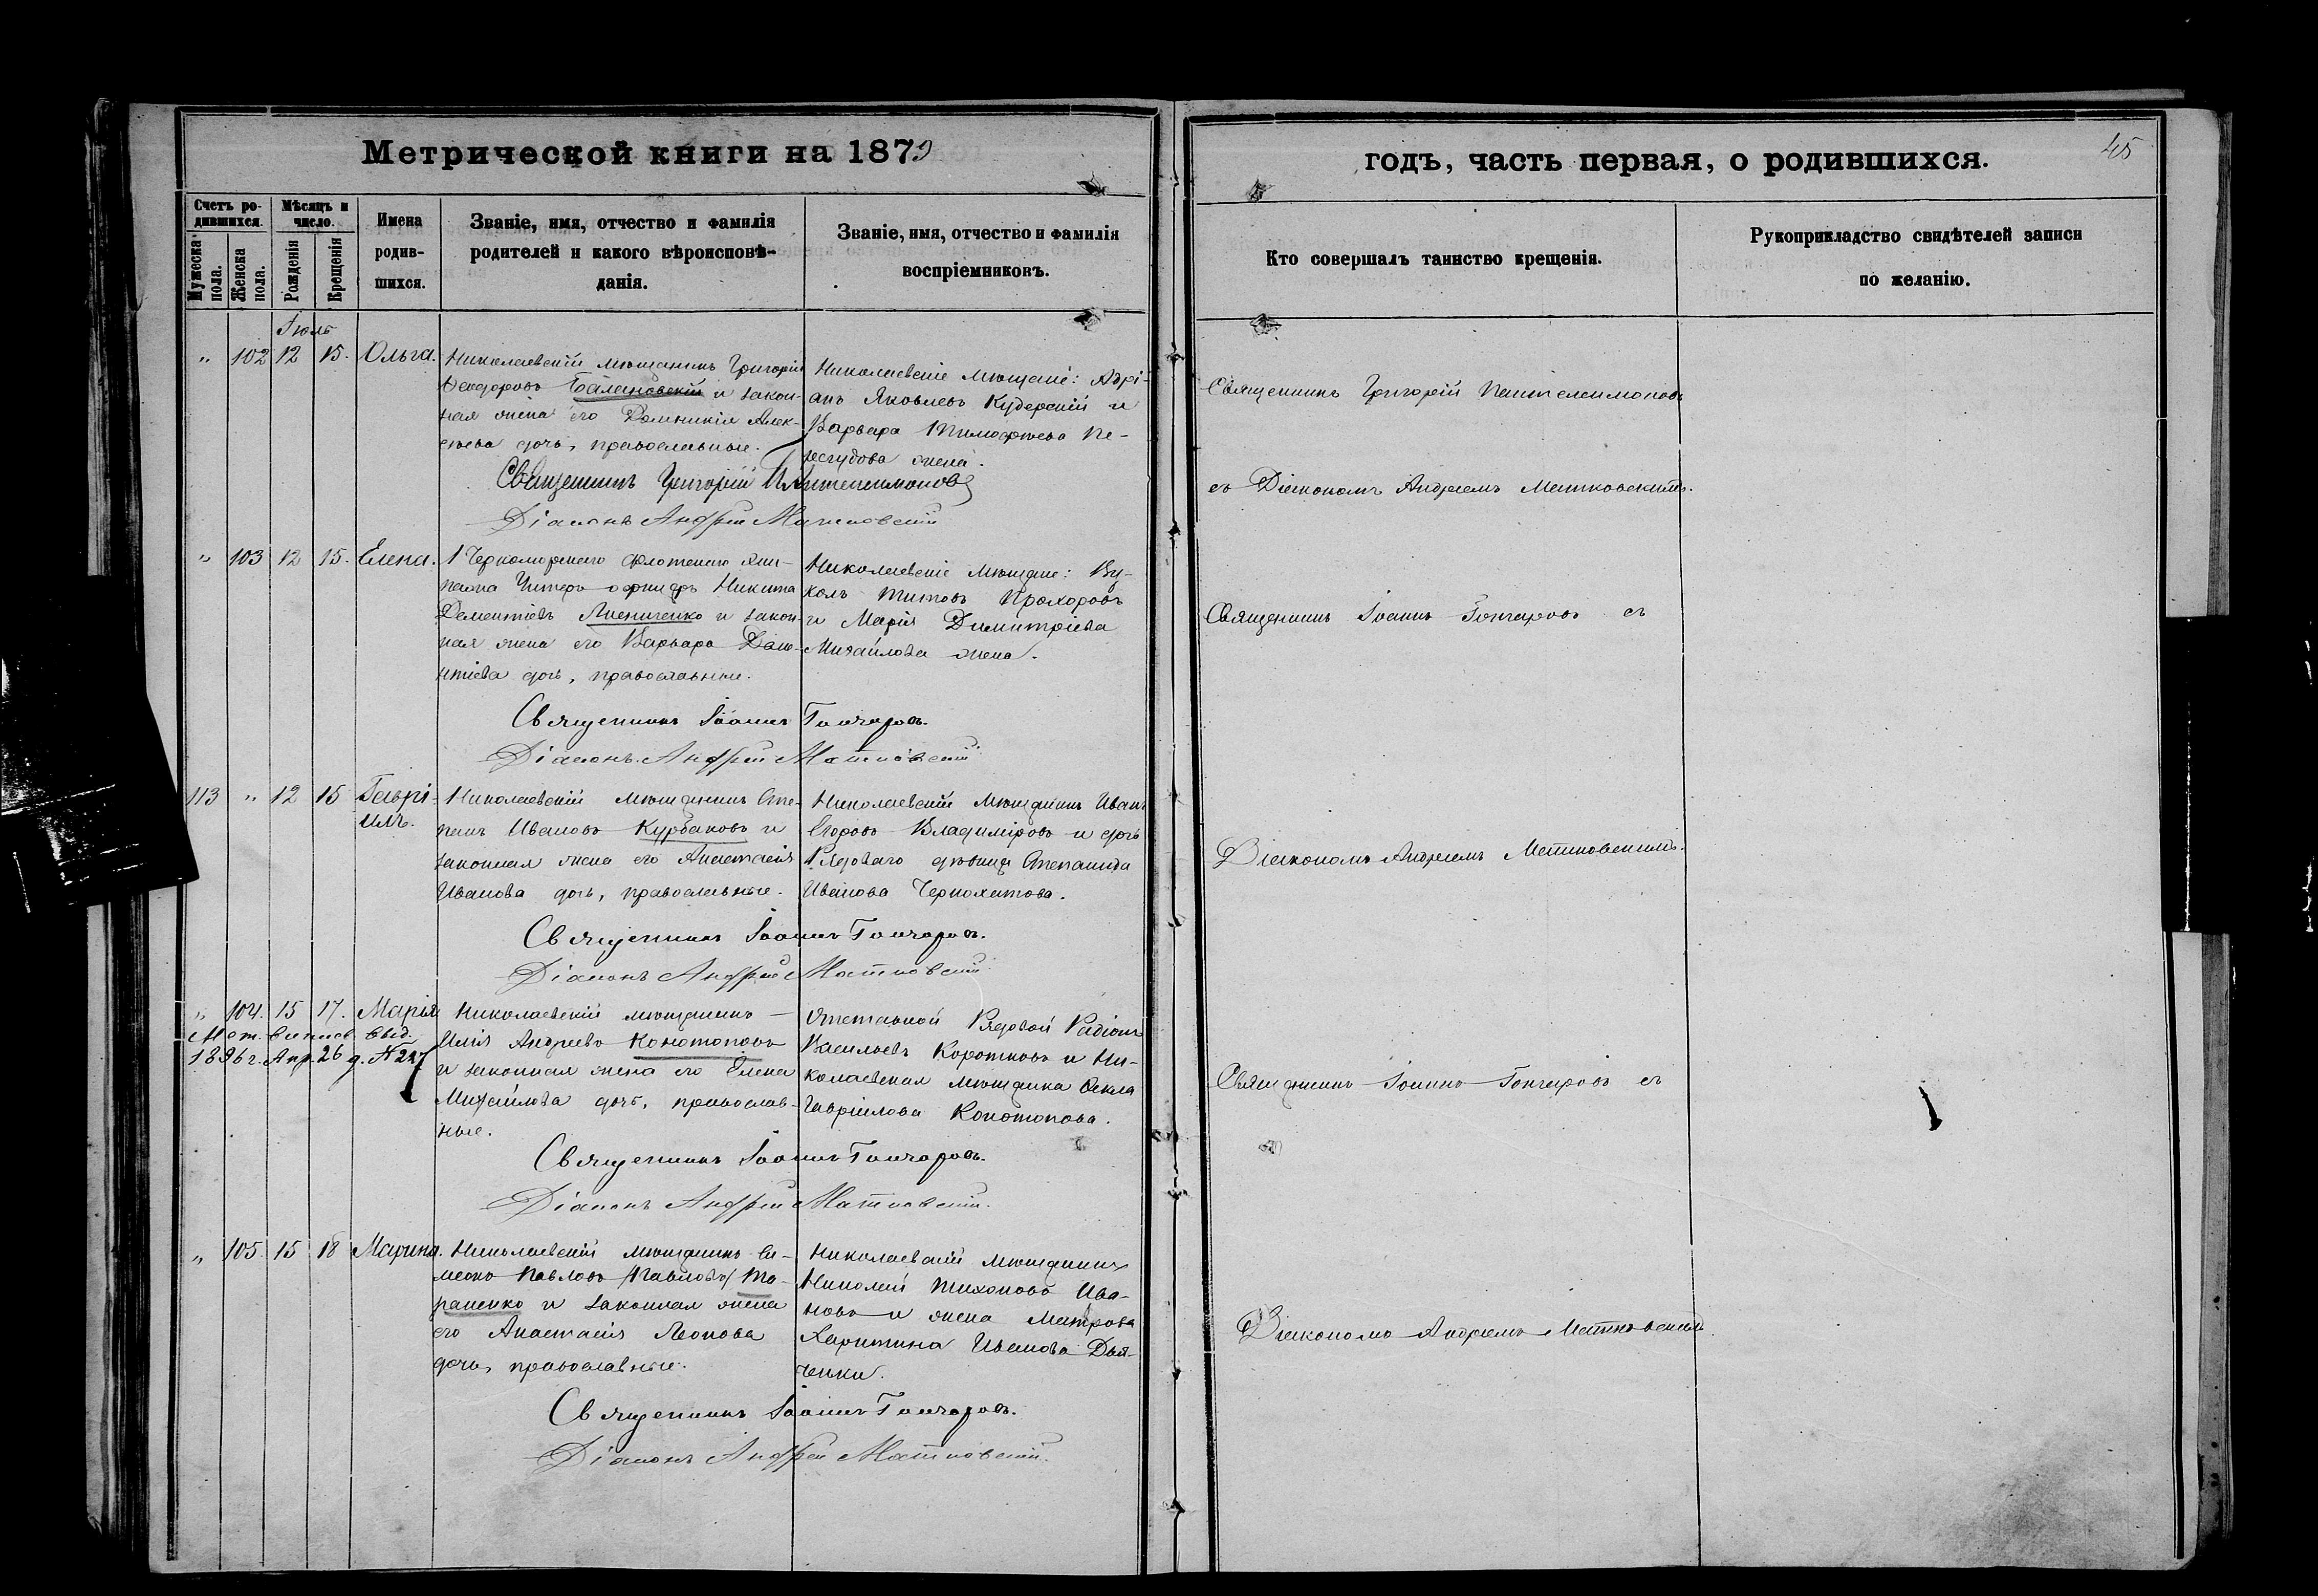 Метрической книги на 1879
годъ, часть первая, о родившихся.
45
Счетъ ро-
дившихся.
Мѣсяцъ и
число.
Мужеска
пола.
Женска
пола.
Рожденія
Крещенія
Имена
родив-
шихся.
Званіе, имя, отчество и фамилія
родителей и какого вѣроисповѣ-
данія.
Званіе, имя, отчество и фамилія
воспріемниковъ.
Кто совершалъ таинство крещенія.
Рукоприкладство свидѣтелей записи
по желанію.
Іюль
" 102 12 15. Ольга.
Николаевскій мѣщанинъ Григорій
Ѳеодоровъ и закон-
ная жена его Домникія Алек-
сѣева дочь, православные.
Николаевскіе мѣщане: Адрі-
анъ Яковлевъ Кудерскій и
Варвара Тимофѣева Пе-
жена.
Священникъ Григорій Пантелеимоновъ
съ Діакономъ Андреемъ Матковскимъ.
Священникъ Григорій Пантелеимоновъ
Діаконъ Андрей Матковскій
" 103 12 15. Елена.
1 Черноморскаго флотскаго эки-
пажа Унтеръ-офицеръ Никита
Дементіевъ и закон-
ная жена его Варвара
дочь, православные.
Николаевскіе мѣщане: Ву-
колъ Титовъ Прохоровъ
и Марія Димитріева
Михайлова жена.
Священникъ Іоаннъ Гончаровъ съ
Священникъ Іоаннъ Гончаровъ.
Діаконъ Андрей Матковскій
113 " 12 15 Гаврі-
илъ.
Николаевскій мѣщанинъ Сте-
панъ Ивановъ Курбаковъ и
законная жена его Анастасія
Иванова дочь, православные.
Николаевскій мѣщанинъ Иванъ
Егоровъ Владиміровъ и дочь
Рядоваго дѣвица Степанида
Иванова Чернохатова.
Діакономъ Андреемъ Матковскимъ.
Священникъ Іоаннъ Гончаровъ.
Діаконъ Андрей Матковскій
" 104. 15 17. Марія
Мет. выпис. выд.
1896 г. Апр. 26 д. №
Николаевскій мѣщанинъ
Илія Андреевъ Конотоповъ
и законная жена его Елена
Михайлова дочь, православ-
ные.
Отставной Рядовой Радіонъ
Васильевъ Коротковъ и Ни-
колаевская мѣщанка Ѳекла
Гавріилова Конотопова.
Священникъ Іоаннъ Гончаровъ съ
Священникъ Іоаннъ Гончаровъ.
Діаконъ Андрей Матковскій.
" 105. 15 18 Марина.
Николаевскій мѣщанинъ Си-
меонъ Павловъ /Павловъ/ Та-
раненко и законная жена
его Анастасія Леонова
дочь, православные.
Николаевскій мѣщанинъ
Николай Тихоновъ Ива-
новъ и жена Матроса
Харитина Иванова Дья-
ченки.
Діакономъ Андреемъ Матковскимъ.
Священникъ Іоаннъ Гончаровъ.
Діаконъ Андрей Матковскій.